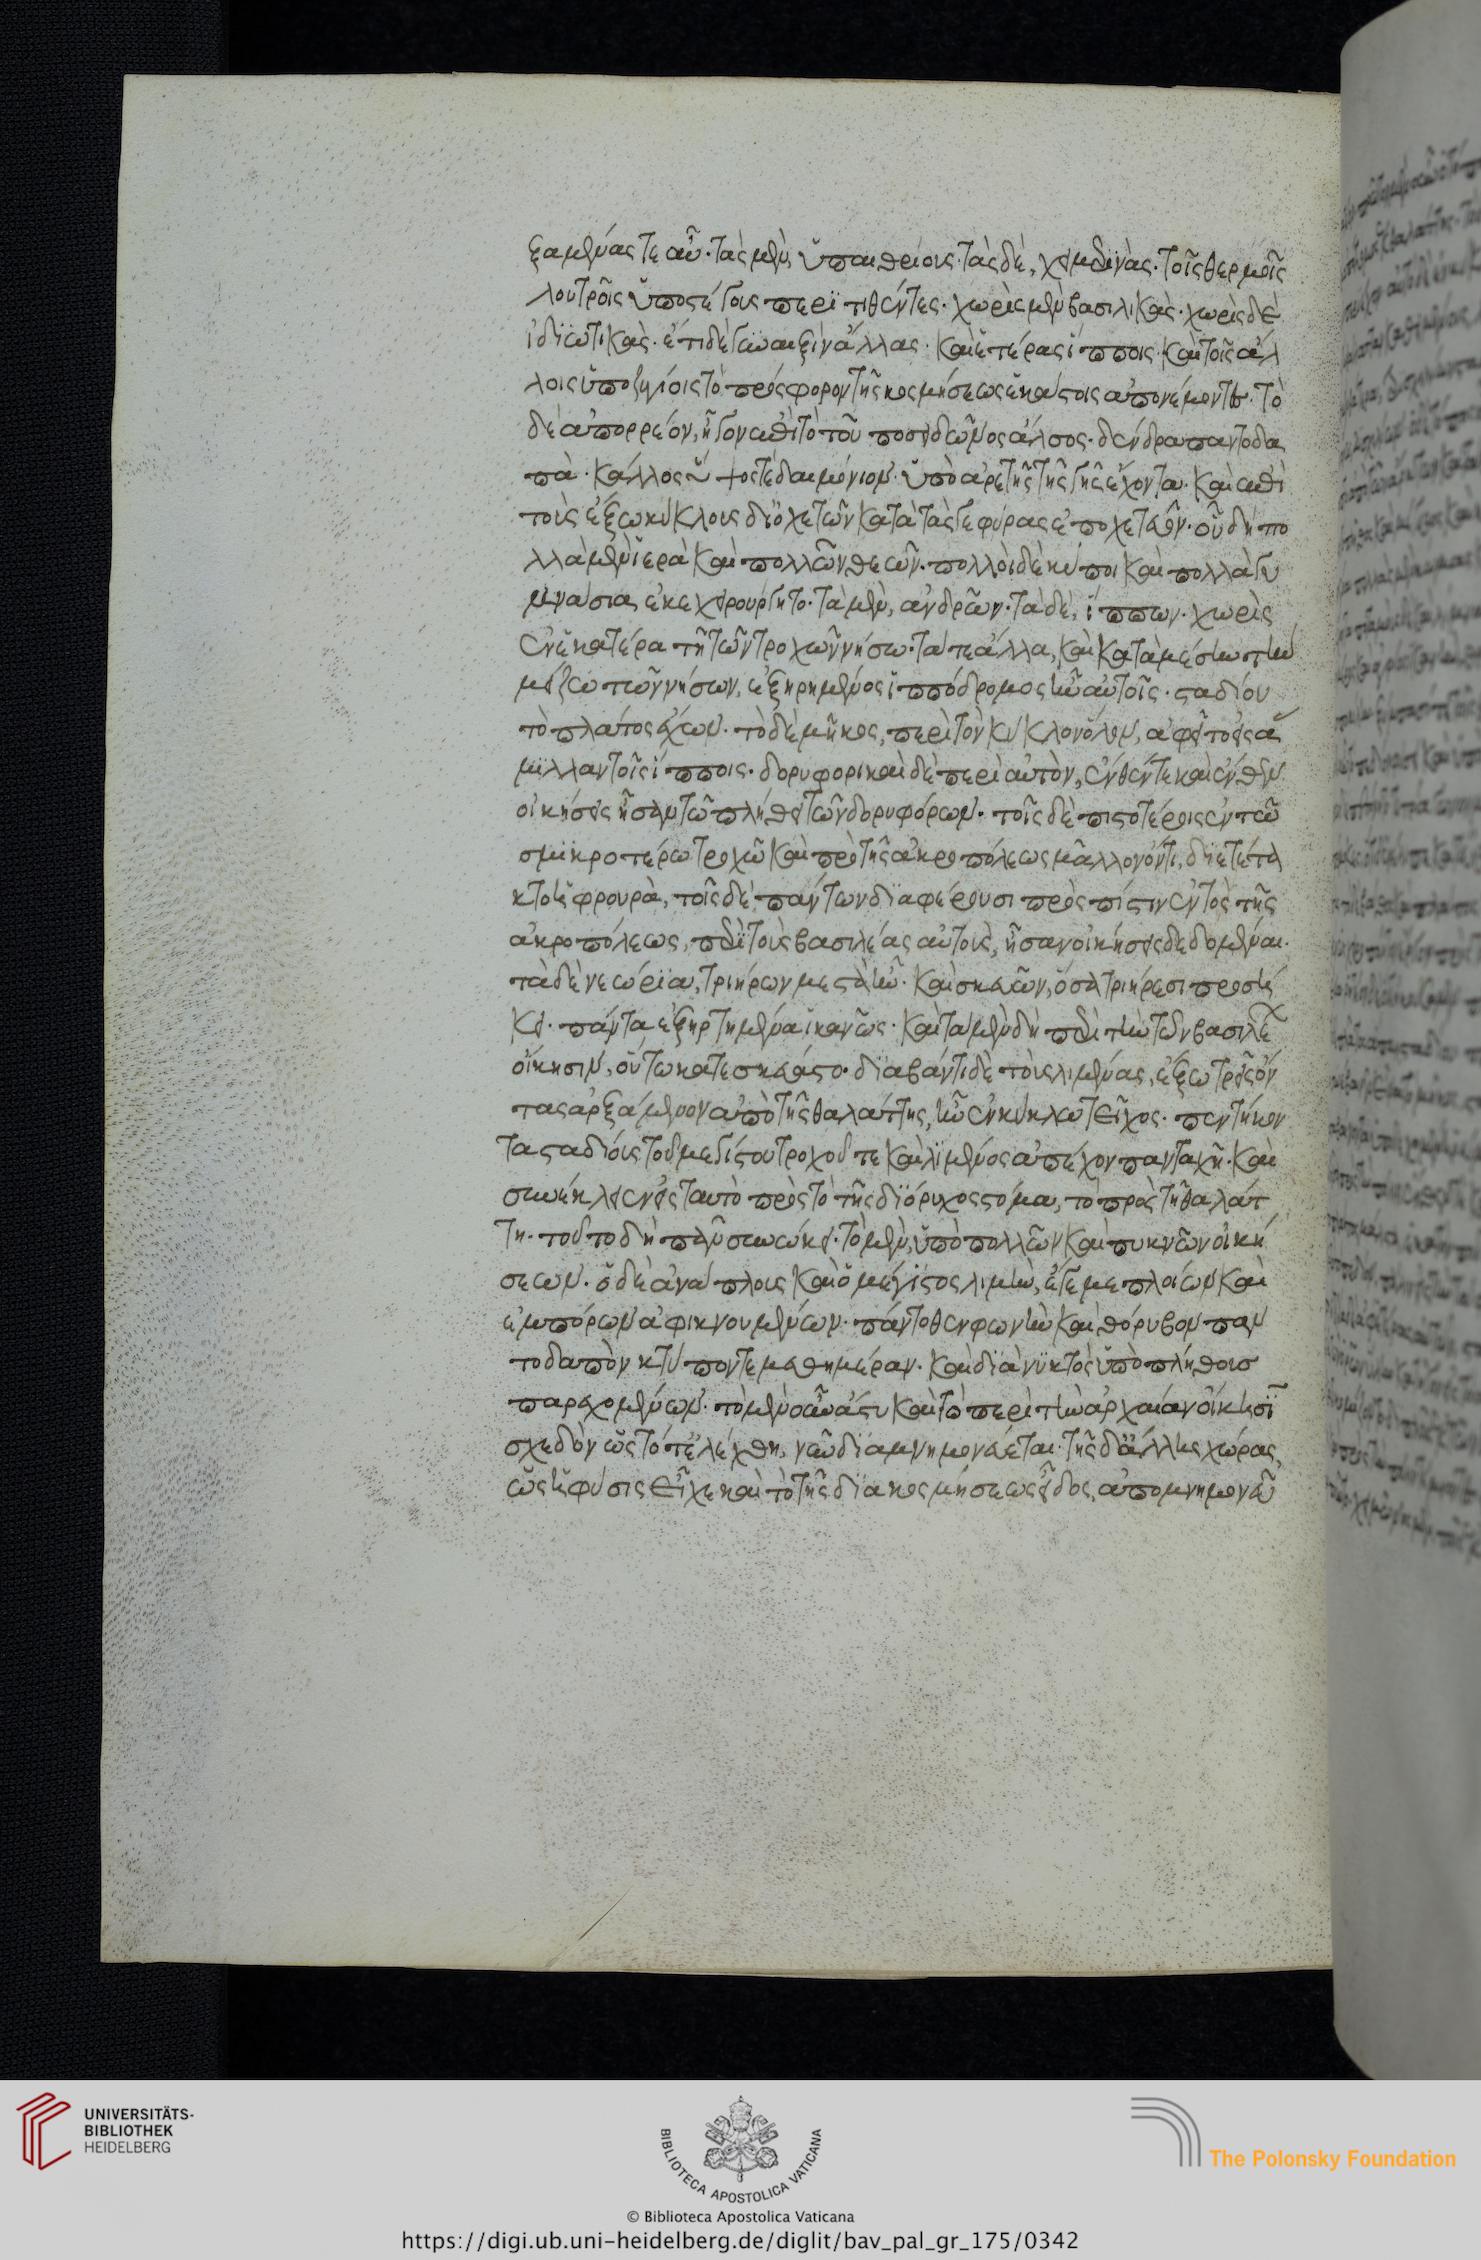 ξαμενάς τε αὖ· τὰς μὲν, ὑπαιθρίους· τὰς δὲ, χειμερινὰς· τοῖς θερμοῖς
λουτροῖς ὑποστέγους περιτιθέντες· χωρὶς μὲν βασιλικὰς· χωρὶς δὲ
ἰδιωτικὰς· ἔτι δὲ γυναιξὶν ἄλλας· καὶ ἑτέρας ἵπποις· καὶ τοῖς ἄλ
λοις ὑποζυγίοις τὸ πρόσφορον τῆς κοσμήσεως ἑκάστοις ἀπονέμοντες· τὸ
δὲ ἀπορρέον, ἦγον ἐπὶ τὸ τοῦ ποσειδῶνος ἄλσος· δένδρα παντοδα
πὰ· κάλλος ὕψος τε δαιμόνιον· ὑπὸ ἀρετῆς τῆς γῆς ἔχοντα· καὶ ἐπὶ
τοὺς ἔξω κύκλους δι' ὀχετῶν κατὰ τὰς γεφύρας ἐποχέτευον· οὗ δὴ πο
λλὰ μὲν ἱερὰ καὶ πολλῶν θεῶν· πολλοὶ δὲ κῆποι καὶ πολλὰ γυ
μνάσια ἐκεχειρούργητο· τὰ μὲν, ἀνδρῶν· τὰ δὲ, ἵππων· χωρὶς
ἐν ἑκατέρα τῆ τῶν τροχῶν νήσω· τά τε ἄλλα, καὶ κατὰ μέσην τὴν
μείζω τῶν νήσων, ἐξηρημένος ἱππόδρομος ἦν αὐτοῖς· σταδίου
τὸ πλάτος ἔχων· τὸ δὲ μῆκος, περὶ τὸν κύκλον ὅλον, ἀφεῖτο εἰς ἅ
μιλλαν τοῖς ἵπποις· δορυφορικαὶ δὲ περὶ αὐτὸν, ἔνθέν τε καὶ ἔνθεν
οἰκήσεις ἦσαν τῶ πλήθει τῶν δορυφόρων· τοῖς δὲ πιστοτέροις ἐν τῶ
σμικροτέρω τροχῶ καὶ πρὸ τῆς ἀκροπόλεως μᾶλλον ὄντι, διετέτα
κτο ἡ φρουρὰ, τοῖς δὲ πάντων διαφέρουσι πρὸς πίστιν ἐντὸς τῆς
ἀκροπόλεως, περὶ τοὺς βασιλέας αὐτοὺς, ἦσαν οἰκήσεις δεδομέναι·
τὰ δὲ νεώρια, τριήρων μεστὰ ἦν· καὶ σκευῶν, ὅσα τριήρεσι προσή
κει· πάντα ἐξηρτημένα ἱκανῶς· καὶ τὰ μὲν δὴ περὶ τὴν τῶν βασιλέ
οἴκησιν, οὕτω κατεσκεύαστο· διαβάντι δὲ τοὺς λιμένας, ἔξω τρεῖς ὄν
τας ἀρξάμενον ἀπὸ τῆς θαλάττης, ἦν ἐν κύκλω τεῖχος· πεντήκον
τα σταδίοις τοῦ μεγίστου τροχοῦ τε καὶ λιμένος ἀπέχον πανταχῆ· καὶ
συνέκλειεν εἰς ταυτὸ πρὸς τὸ τῆς διόρυχος στόμα, τὸ πρὸς τῆ θαλάτ
τη· τοῦτο δὴ πᾶν συνωκεῖ· τὸ μὲν, ὑπὸ πολλῶν καὶ πυκνῶν οἰκή
σεων· ὁ δὲ ἀνάπλους καὶ ὁ μέγιστος λιμὴν, ἔγεμε πλοίων καὶ
ἐμπόρων ἀφικνουμένων· πάντοθεν φωνὴν καὶ θόρυβον παν
τοδαπὸν κτύπον τε μεθημέραν· καὶ διὰ νυκτὸς ὑπὸ πλήθους
παρεχομένων· τὸ μὲν οὖν ἄστυ καὶ τὸ περὶ τὴν ἀρχαίαν οἴκησιν
σχεδὸν ὡς τότ' ἐλέχθη, νῦν διαμνημονεύεται· τῆς δ' ἄλλης χώρας,
ὡς ἡ φύσις εἶχε καὶ τὸ τῆς διακοσμήσεως εἶδος, ἀπομνημονεῦ
UNIVERSITÄTS-
BIBLIOTHEK
HEIDELBERG
BIBLIOTECA APOSTOLICA VATICANA
The Polonsky Foundation
© Biblioteca Apostolica Vaticana
https://digi.ub.uni-heidelberg.de/diglit/bav_pal_gr_175/0342